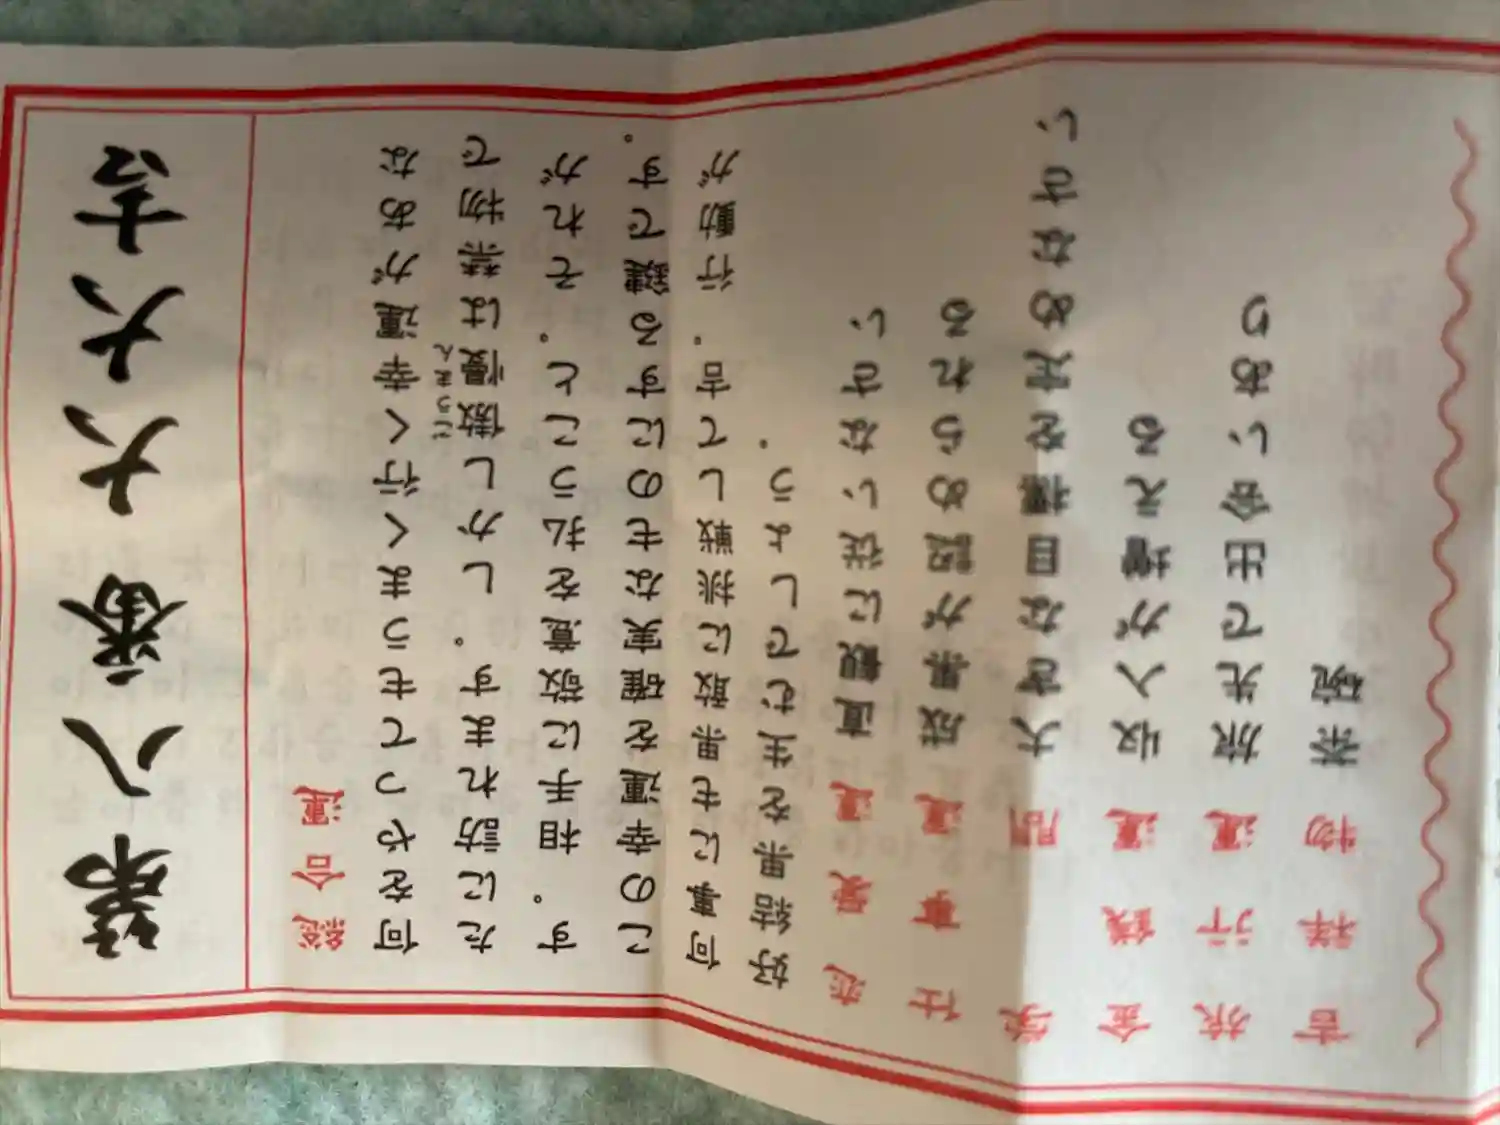 第八番 大大吉
総合運
何をやってもうまく行く幸運があな
たに訪れます。しかし傲慢は禁物で
ごうまん
す。相手に敬意を払うこと。それが
この幸運を確実なものにする鍵です。
何事にも果敢に挑戦して吉。行動が
好結果を生むでしょう。
恋愛運 直観に従いなさい
仕事運 成果が認められる
学問 大きな目標を定めなさい
金銭運 収入が増える
旅行運 旅先で出会いあり
吉祥物 茶碗